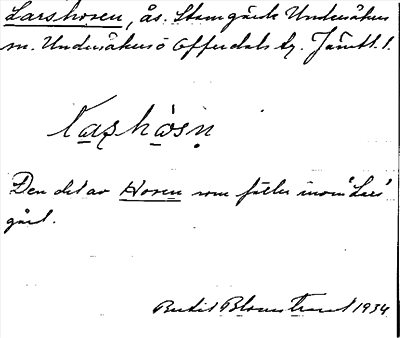 Larshosen, ås. Stamgärde Undersåkers
sn. Undersåkers o Offerdals tg. Jämtl. l.
Laṣhòsn̥
Den del av Hosen som faller inom 'Lars'
gård.
Bertil Blomstrand 1934